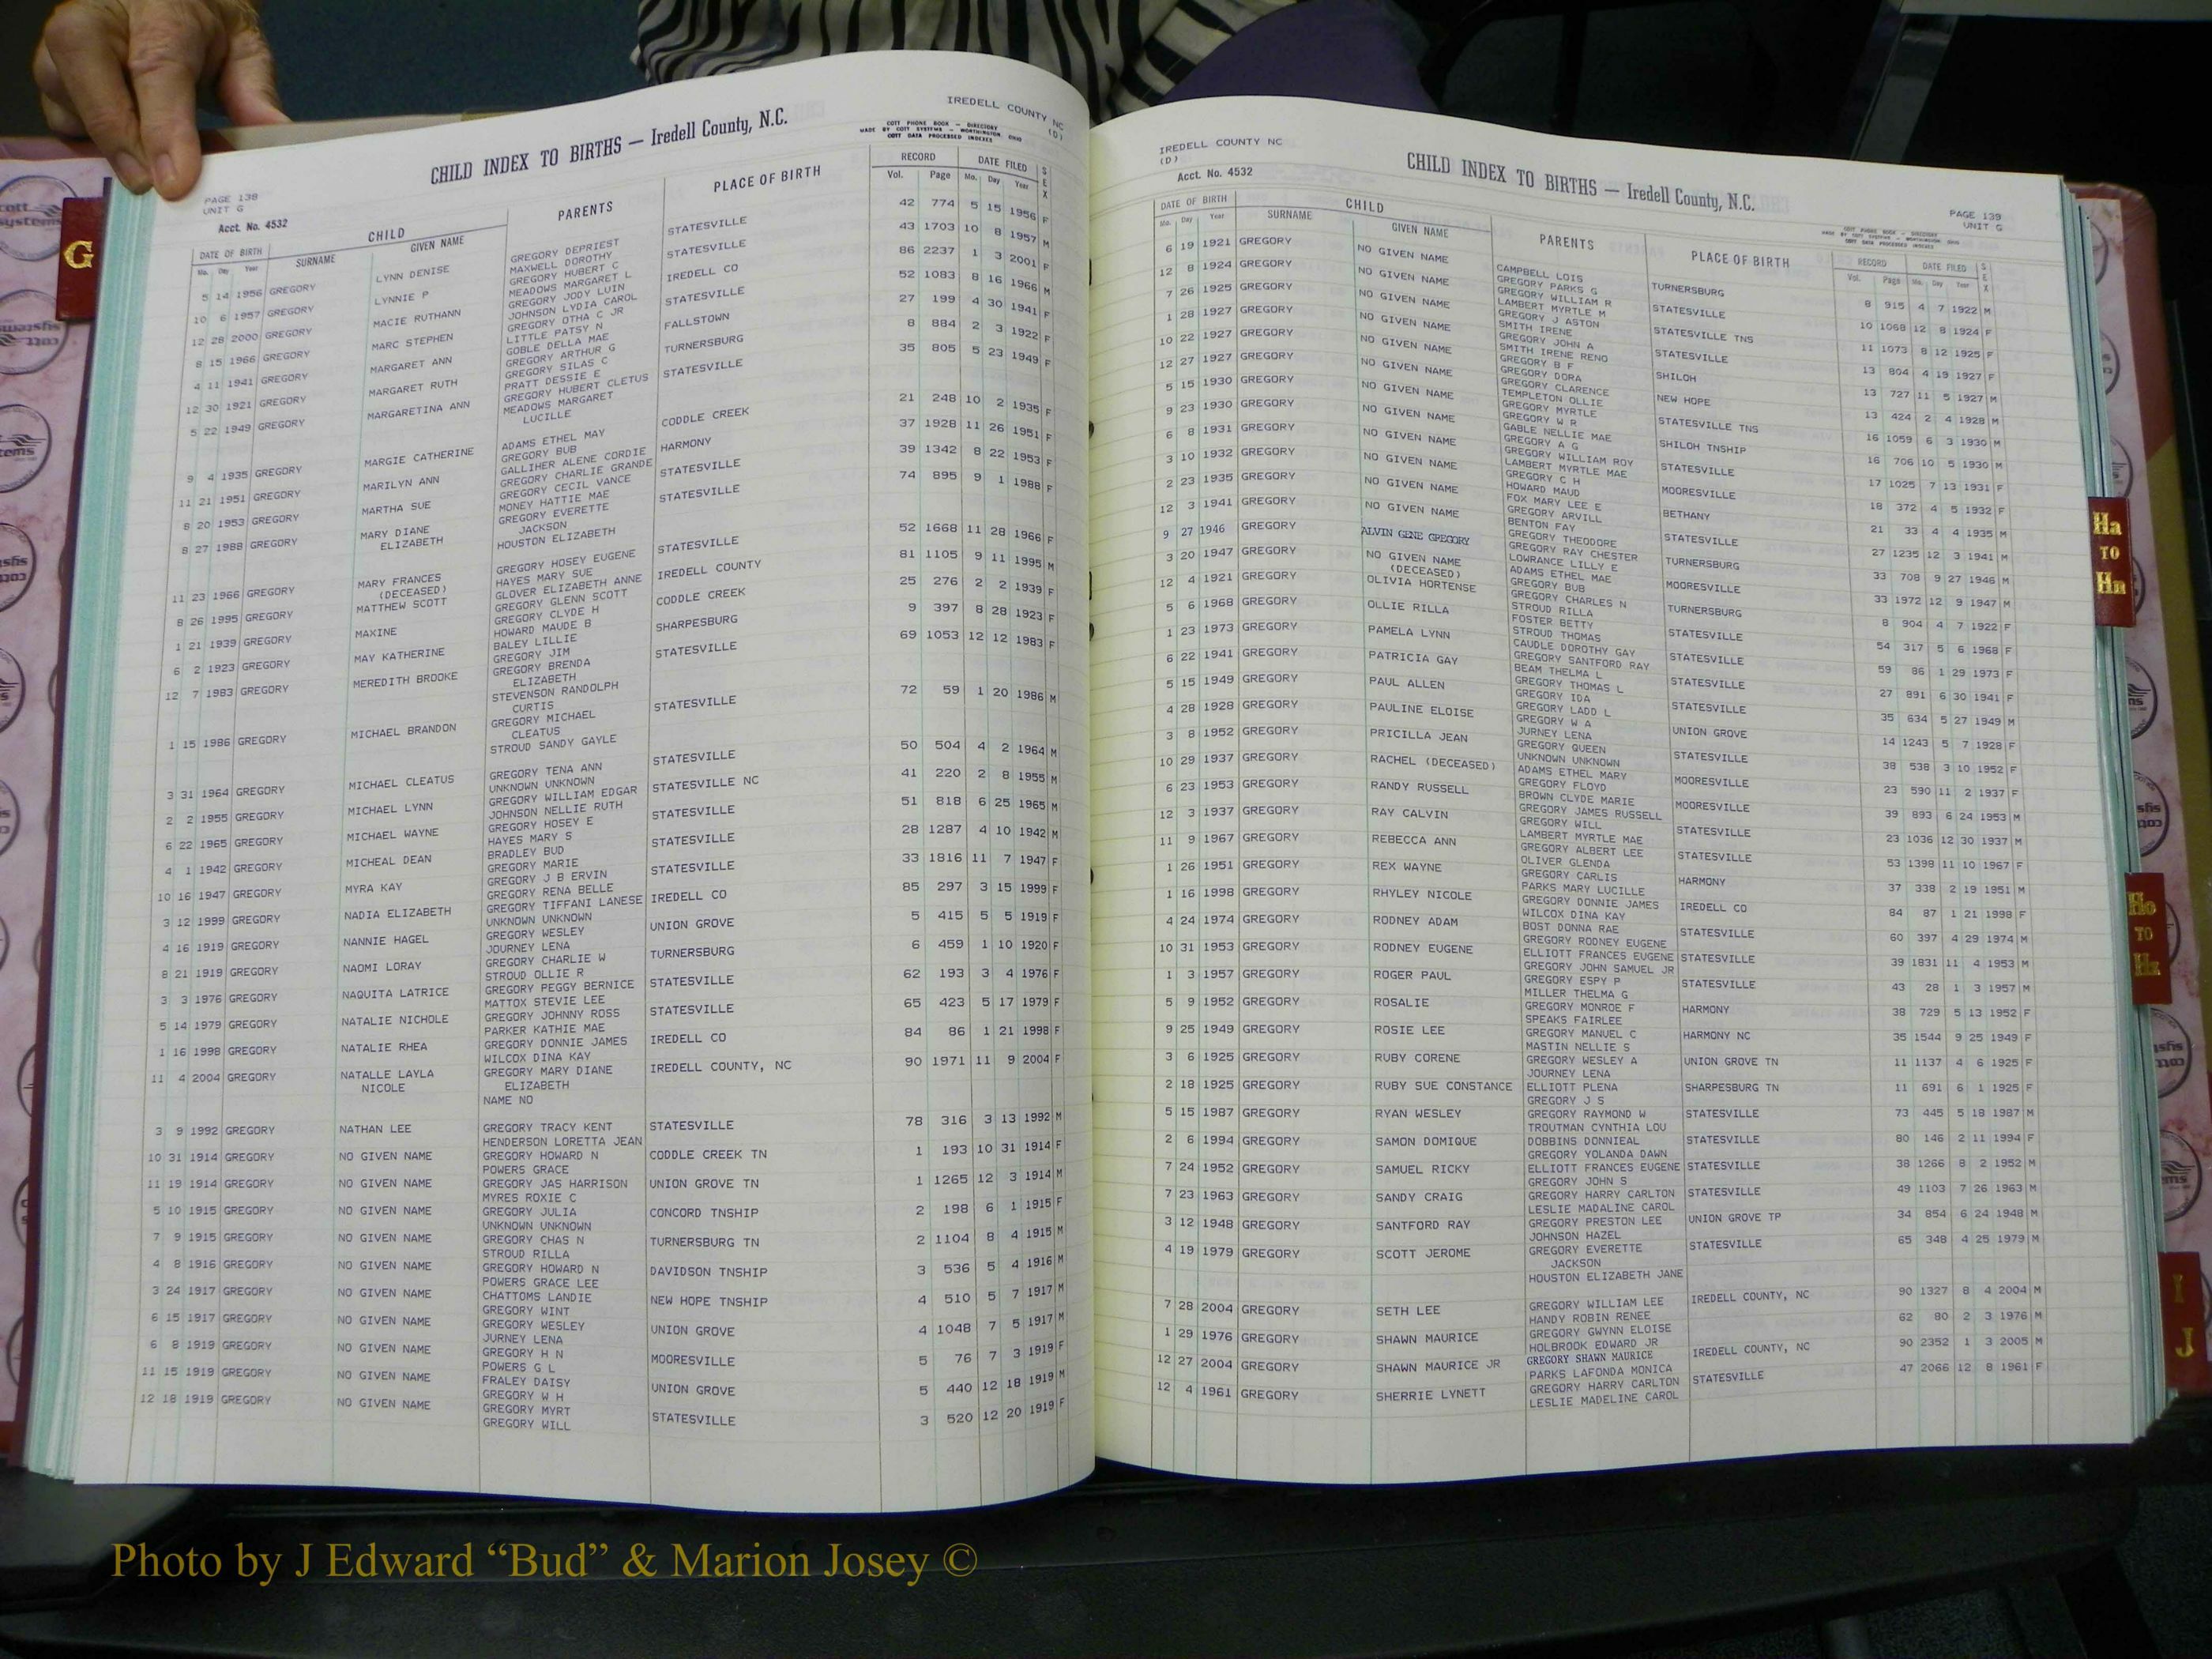 PAGE 138
UNIT G
Acct. No. 4532
CHILD INDEX TO BIRTHS — Iredell County, N.C.
IREDELL COUNTY NC
(D)
COTT PHONE BOOK — DIRECTORY
MADE BY COTT SYSTEMS — WORTHINGTON, OHIO
COTT DATA PROCESSED INDEXES
DATE OF BIRTH CHILD PARENTS PLACE OF BIRTH RECORD DATE FILED SEX
Mo. Day Year SURNAME GIVEN NAME Vol. Page Mo. Day Year
5 14 1956 GREGORY LYNN DENISE GREGORY DEPRIEST STATESVILLE 42 774 5 15 1956 F
MAXWELL DOROTHY
10 6 1957 GREGORY LYNNIE P GREGORY HUBERT C STATESVILLE 43 1703 10 8 1957 M
MEADOWS MARGARET L
12 28 2000 GREGORY MACIE RUTHANN GREGORY JODY LUIN IREDELL CO 86 2237 1 3 2001 F
JOHNSON LYDIA CAROL
8 15 1966 GREGORY MARC STEPHEN GREGORY OTHA C JR STATESVILLE 52 1083 8 16 1966 M
LITTLE PATSY N
4 11 1941 GREGORY MARGARET ANN GOBLE DELLA MAE FALLSTOWN 27 199 4 30 1941 F
GREGORY ARTHUR G
12 30 1921 GREGORY MARGARET RUTH GREGORY SILAS C TURNERSBURG 8 884 2 3 1922 F
PRATT DESSIE E
5 22 1949 GREGORY MARGARETINA ANN GREGORY HUBERT CLETUS STATESVILLE 35 805 5 23 1949 F
MEADOWS MARGARET
LUCILLE
9 4 1935 GREGORY MARGIE CATHERINE ADAMS ETHEL MAY CODDLE CREEK 21 248 10 2 1935 F
GREGORY BUB
11 21 1951 GREGORY MARILYN ANN GALLIHER ALENE CORDIE HARMONY 37 1928 11 26 1951 F
GREGORY CHARLIE GRANDE
8 20 1953 GREGORY MARTHA SUE GREGORY CECIL VANCE STATESVILLE 39 1342 8 22 1953 F
MONEY HATTIE MAE
8 27 1988 GREGORY MARY DIANE GREGORY EVERETTE STATESVILLE 74 895 9 1 1988 F
ELIZABETH JACKSON
HOUSTON ELIZABETH
11 23 1966 GREGORY MARY FRANCES GREGORY HOSEY EUGENE STATESVILLE 52 1668 11 28 1966 F
(DECEASED) HAYES MARY SUE
8 26 1995 GREGORY MATTHEW SCOTT GLOVER ELIZABETH ANNE IREDELL COUNTY 81 1105 9 11 1995 M
GREGORY GLENN SCOTT
1 21 1939 GREGORY MAXINE GREGORY CLYDE H CODDLE CREEK 25 276 2 2 1939 F
HOWARD MAUDE B
6 2 1923 GREGORY MAY KATHERINE BALEY LILLIE SHARPESBURG 9 397 8 28 1923 F
GREGORY JIM
12 7 1983 GREGORY MEREDITH BROOKE GREGORY BRENDA STATESVILLE 69 1053 12 12 1983 F
ELIZABETH
STEVENSON RANDOLPH
CURTIS
1 15 1986 GREGORY MICHAEL BRANDON GREGORY MICHAEL STATESVILLE 72 59 1 20 1986 M
CLEATUS
STROUD SANDY GAYLE
3 31 1964 GREGORY MICHAEL CLEATUS GREGORY TENA ANN STATESVILLE 50 504 4 2 1964 M
UNKNOWN UNKNOWN
2 2 1955 GREGORY MICHAEL LYNN GREGORY WILLIAM EDGAR STATESVILLE NC 41 220 2 8 1955 M
JOHNSON NELLIE RUTH
6 22 1965 GREGORY MICHAEL WAYNE GREGORY HOSEY E STATESVILLE 51 818 6 25 1965 M
HAYES MARY S
4 1 1942 GREGORY MICHEAL DEAN BRADLEY BUD STATESVILLE 28 1287 4 10 1942 M
GREGORY MARIE
10 16 1947 GREGORY MYRA KAY GREGORY J B ERVIN STATESVILLE 33 1816 11 7 1947 F
GREGORY RENA BELLE
3 12 1999 GREGORY NADIA ELIZABETH GREGORY TIFFANI LANESE IREDELL CO 85 297 3 15 1999 F
UNKNOWN UNKNOWN
4 16 1919 GREGORY NANNIE HAGEL GREGORY WESLEY UNION GROVE 5 415 5 5 1919 F
JOURNEY LENA
8 21 1919 GREGORY NAOMI LORAY GREGORY CHARLIE W TURNERSBURG 6 459 1 10 1920 F
STROUD OLLIE R
3 3 1976 GREGORY NAQUITA LATRICE GREGORY PEGGY BERNICE STATESVILLE 62 193 3 4 1976 F
MATTOX STEVIE LEE
5 14 1979 GREGORY NATALIE NICHOLE GREGORY JOHNNY ROSS STATESVILLE 65 423 5 17 1979 F
PARKER KATHIE MAE
1 16 1998 GREGORY NATALIE RHEA GREGORY DONNIE JAMES IREDELL CO 84 86 1 21 1998 F
WILCOX DINA KAY
11 4 2004 GREGORY NATALLE LAYLA GREGORY MARY DIANE IREDELL COUNTY, NC 90 1971 11 9 2004 F
NICOLE ELIZABETH
NAME NO
3 9 1992 GREGORY NATHAN LEE GREGORY TRACY KENT STATESVILLE 78 316 3 13 1992 M
HENDERSON LORETTA JEAN
10 31 1914 GREGORY NO GIVEN NAME GREGORY HOWARD N CODDLE CREEK TN 1 193 10 31 1914 F
POWERS GRACE
11 19 1914 GREGORY NO GIVEN NAME GREGORY JAS HARRISON UNION GROVE TN 1 1265 12 3 1914 M
MYRES ROXIE C
5 10 1915 GREGORY NO GIVEN NAME GREGORY JULIA CONCORD TNSHIP 2 198 6 1 1915 F
UNKNOWN UNKNOWN
7 9 1915 GREGORY NO GIVEN NAME GREGORY CHAS N TURNERSBURG TN 2 1104 8 4 1915 M
STROUD RILLA
4 8 1916 GREGORY NO GIVEN NAME GREGORY HOWARD N DAVIDSON TNSHIP 3 536 5 4 1916 M
POWERS GRACE LEE
3 24 1917 GREGORY NO GIVEN NAME CHATTOMS LANDIE NEW HOPE TNSHIP 4 510 5 7 1917 M
GREGORY WINT
6 15 1917 GREGORY NO GIVEN NAME GREGORY WESLEY UNION GROVE 4 1048 7 5 1917 M
JURNEY LENA
6 8 1919 GREGORY NO GIVEN NAME GREGORY H N MOORESVILLE 5 76 7 3 1919 F
POWERS G L
11 15 1919 GREGORY NO GIVEN NAME FRALEY DAISY UNION GROVE 5 440 12 18 1919 M
GREGORY W H
12 18 1919 GREGORY NO GIVEN NAME GREGORY MYRT STATESVILLE 3 520 12 20 1919 F
GREGORY WILL
IREDELL COUNTY NC
(D)
Acct. No. 4532
CHILD INDEX TO BIRTHS — Iredell County, N.C.
PAGE 139
UNIT G
COTT PHONE BOOK — DIRECTORY
MADE BY COTT SYSTEMS — WORTHINGTON, OHIO
COTT DATA PROCESSED INDEXES
DATE OF BIRTH CHILD PARENTS PLACE OF BIRTH RECORD DATE FILED SEX
Mo. Day Year SURNAME GIVEN NAME Vol. Page Mo. Day Year
6 19 1921 GREGORY NO GIVEN NAME CAMPBELL LOIS TURNERSBURG 8 915 4 7 1922 M
GREGORY PARKS G
12 8 1924 GREGORY NO GIVEN NAME GREGORY WILLIAM R STATESVILLE 10 1068 12 8 1924 F
LAMBERT MYRTLE M
7 26 1925 GREGORY NO GIVEN NAME GREGORY J ASTON STATESVILLE TNS 11 1073 8 12 1925 F
SMITH IRENE
1 28 1927 GREGORY NO GIVEN NAME GREGORY JOHN A STATESVILLE 13 804 4 19 1927 F
SMITH IRENE RENO
10 22 1927 GREGORY NO GIVEN NAME GREGORY B F SHILOH 13 727 11 5 1927 M
GREGORY DORA
12 27 1927 GREGORY NO GIVEN NAME GREGORY CLARENCE NEW HOPE 13 424 2 4 1928 M
TEMPLETON OLLIE
5 15 1930 GREGORY NO GIVEN NAME GREGORY MYRTLE STATESVILLE TNS 16 1059 6 3 1930 M
GREGORY W R
9 23 1930 GREGORY NO GIVEN NAME GABLE NELLIE MAE SHILOH TNSHIP 16 706 10 5 1930 M
GREGORY A G
6 8 1931 GREGORY NO GIVEN NAME GREGORY WILLIAM ROY STATESVILLE 17 1025 7 13 1931 F
LAMBERT MYRTLE MAE
3 10 1932 GREGORY NO GIVEN NAME GREGORY C H MOORESVILLE 18 372 4 5 1932 F
HOWARD MAUD
2 23 1935 GREGORY NO GIVEN NAME FOX MARY LEE E BETHANY 21 33 4 4 1935 M
GREGORY ARVILL
12 3 1941 GREGORY NO GIVEN NAME BENTON FAY STATESVILLE 27 1235 12 3 1941 M
GREGORY THEODORE
9 27 1946 GREGORY ALVIN GENE GREGORY GREGORY RAY CHESTER TURNERSBURG 33 708 9 27 1946 M
LOWRANCE LILLY E
3 20 1947 GREGORY NO GIVEN NAME ADAMS ETHEL MAE MOORESVILLE 33 1972 12 9 1947 M
(DECEASED) GREGORY BUB
12 4 1921 GREGORY OLIVIA HORTENSE GREGORY CHARLES N TURNERSBURG 8 904 4 7 1922 F
STROUD RILLA
5 6 1968 GREGORY OLLIE RILLA FOSTER BETTY STATESVILLE 54 317 5 6 1968 F
STROUD THOMAS
1 23 1973 GREGORY PAMELA LYNN CAUDLE DOROTHY GAY STATESVILLE 59 86 1 29 1973 F
GREGORY SANTFORD RAY
6 22 1941 GREGORY PATRICIA GAY BEAM THELMA L STATESVILLE 27 891 6 30 1941 F
GREGORY THOMAS L
5 15 1949 GREGORY PAUL ALLEN GREGORY IDA STATESVILLE 35 634 5 27 1949 M
GREGORY LADD L
4 28 1928 GREGORY PAULINE ELOISE GREGORY W A UNION GROVE 14 1243 5 7 1928 F
JURNEY LENA
3 8 1952 GREGORY PRICILLA JEAN GREGORY QUEEN STATESVILLE 38 538 3 10 1952 F
UNKNOWN UNKNOWN
10 29 1937 GREGORY RACHEL (DECEASED) ADAMS ETHEL MARY MOORESVILLE 23 590 11 2 1937 F
GREGORY FLOYD
6 23 1953 GREGORY RANDY RUSSELL BROWN CLYDE MARIE MOORESVILLE 39 893 6 24 1953 M
GREGORY JAMES RUSSELL
12 3 1937 GREGORY RAY CALVIN GREGORY WILL STATESVILLE 23 1036 12 30 1937 M
LAMBERT MYRTLE MAE
11 9 1967 GREGORY REBECCA ANN GREGORY ALBERT LEE STATESVILLE 53 1398 11 10 1967 F
OLIVER GLENDA
1 26 1951 GREGORY REX WAYNE GREGORY CARLIS HARMONY 37 338 2 19 1951 M
PARKS MARY LUCILLE
1 16 1998 GREGORY RHYLEY NICOLE GREGORY DONNIE JAMES IREDELL CO 84 87 1 21 1998 F
WILCOX DINA KAY
4 24 1974 GREGORY RODNEY ADAM BOST DONNA RAE STATESVILLE 60 397 4 29 1974 M
GREGORY RODNEY EUGENE
10 31 1953 GREGORY RODNEY EUGENE ELLIOTT FRANCES EUGENE STATESVILLE 39 1831 11 4 1953 M
GREGORY JOHN SAMUEL JR
1 3 1957 GREGORY ROGER PAUL GREGORY ESPY P STATESVILLE 43 28 1 3 1957 M
MILLER THELMA G
5 9 1952 GREGORY ROSALIE GREGORY MONROE F HARMONY 38 729 5 13 1952 F
SPEAKS FAIRLEE
9 25 1949 GREGORY ROSIE LEE GREGORY MANUEL C HARMONY NC 35 1544 9 25 1949 F
MASTIN NELLIE S
3 6 1925 GREGORY RUBY CORENE GREGORY WESLEY A UNION GROVE TN 11 1137 4 6 1925 F
JOURNEY LENA
2 18 1925 GREGORY RUBY SUE CONSTANCE ELLIOTT PLENA SHARPESBURG TN 11 691 6 1 1925 F
GREGORY J S
5 15 1987 GREGORY RYAN WESLEY GREGORY RAYMOND W STATESVILLE 73 445 5 18 1987 M
TROUTMAN CYNTHIA LOU
2 6 1994 GREGORY SAMON DOMIQUE DOBBINS DONNIEAL STATESVILLE 80 146 2 11 1994 F
GREGORY YOLANDA DAWN
7 24 1952 GREGORY SAMUEL RICKY ELLIOTT FRANCES EUGENE STATESVILLE 38 1266 8 2 1952 M
GREGORY JOHN S
7 23 1963 GREGORY SANDY CRAIG GREGORY HARRY CARLTON STATESVILLE 49 1103 7 26 1963 M
LESLIE MADALINE CAROL
3 12 1948 GREGORY SANTFORD RAY GREGORY PRESTON LEE UNION GROVE TP 34 854 6 24 1948 M
JOHNSON HAZEL
4 19 1979 GREGORY SCOTT JEROME GREGORY EVERETTE STATESVILLE 65 348 4 25 1979 M
JACKSON
HOUSTON ELIZABETH JANE
7 28 2004 GREGORY SETH LEE GREGORY WILLIAM LEE IREDELL COUNTY, NC 90 1327 8 4 2004 M
HANDY ROBIN RENEE
1 29 1976 GREGORY SHAWN MAURICE GREGORY GWYNN ELOISE 62 80 2 3 1976 M
HOLBROOK EDWARD JR
12 27 2004 GREGORY SHAWN MAURICE JR GREGORY SHAWN MAURICE IREDELL COUNTY, NC 90 2352 1 3 2005 M
PARKS LAFONDA MONICA
12 4 1961 GREGORY SHERRIE LYNETT GREGORY HARRY CARLTON STATESVILLE 47 2066 12 8 1961 F
LESLIE MADELINE CAROL
G
Ha
TO
Hn
Ho
TO
Hz
I
J
Photo by J Edward “Bud” & Marion Josey ©